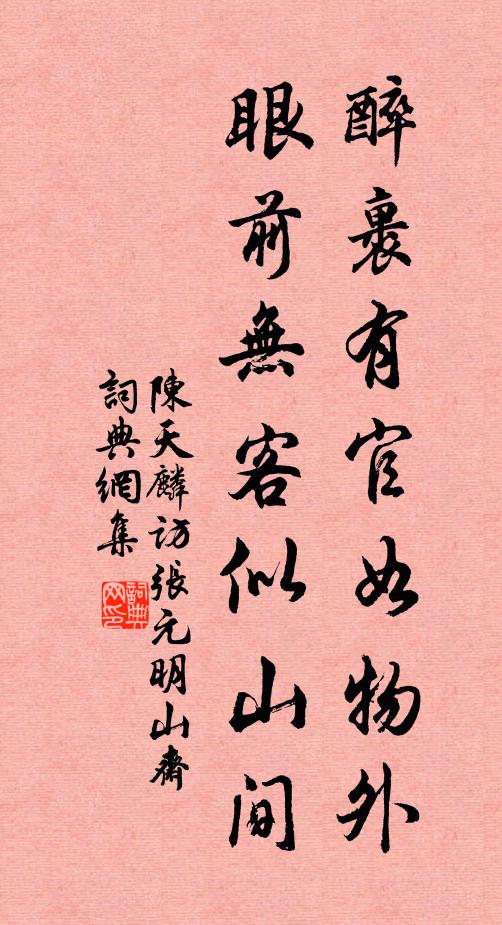 醉裏有官如物外
眼前無客似山間
陳天麟訪張元明山齋
詞典網集
詞典
网印